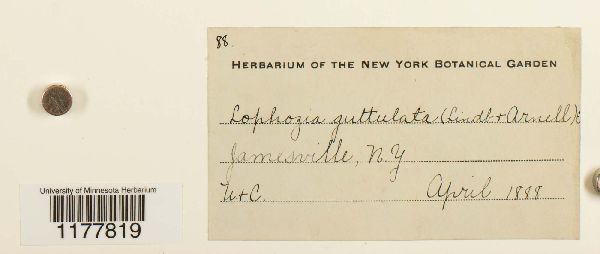 88.
HERBARIUM OF THE NEW YORK BOTANICAL GARDEN
Lophozia guttulata (Lindb + Arnell)
Jamesville, N.Y
U+C. April 1888
University of Minnesota Herbarium
1177819